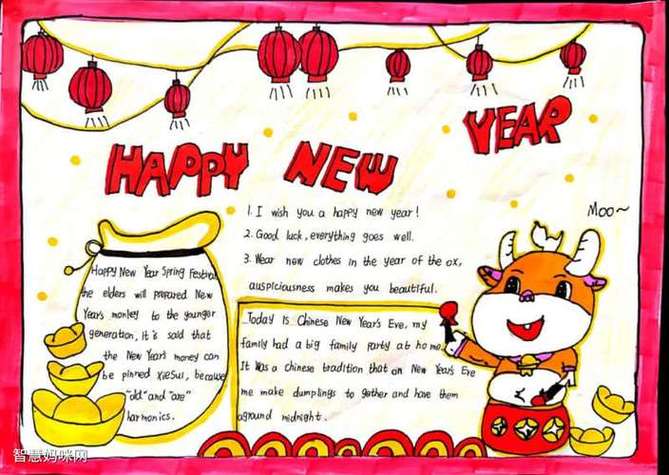 HAPPY NEW YEAR
Moo~
1. I wish you a happy new year!
2. Good luck, everything goes well.
3. Wear new clothes in the year of the ox,
auspiciousness makes you beautiful.
Happy New Year Spring Festival
the elders will prepared New
Year's monkey to the younger
generation, It is said that
the New Year's money can
be pinned XieSui, because
"old" and "are"
harmonics.
Today Is Chinese New Year's Eve, my
family had a big family party at home.
It was a chinese tradition that on New Year's Eve
me make dumplings to gether and have them
aground midnight.
智慧妈咪网